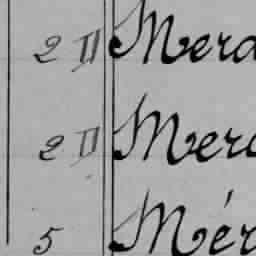 2 II Merc
2 II Merc
5 Mér